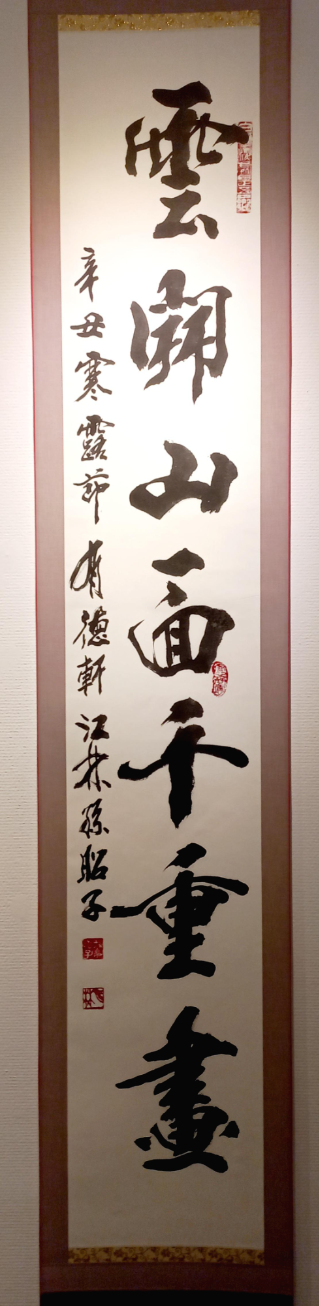 雲開山面千重畫
辛丑寒露節 有德軒 江林孫昭子